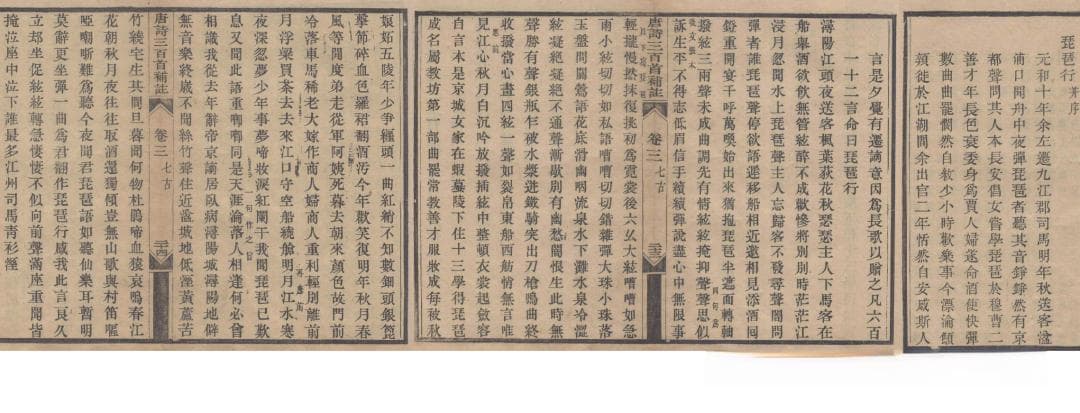 琵琶行并序
元和十年余左遷九江郡司馬明年秋送客湓
浦口聞舟中夜彈琵琶者聽其音錚錚然有京
都聲問其人本長安倡女嘗學琵琶於穆曹二
善才年長色衰委身爲賈人婦遂命酒使快彈
數曲曲罷憫然自敘少小時歡樂事今漂淪
徙於江湖間余出官二年恬然自安感斯人
言是夕覺有遷謫意因爲長歌以贈之凡六百
一十二言命曰琵琶行
潯陽江頭夜送客楓葉荻花秋瑟瑟主人下馬客在
船舉酒欲飲無管絃醉不成歡慘將別別時茫茫江
浸月忽聞水上琵琶聲主人忘歸客不發尋聲闇問
彈者誰琵琶聲停欲語遲移船相近邀相見添酒回
鐙重開宴千呼萬喚始出來猶抱琵琶半遮面轉軸
撥絃三兩聲未成曲調先有情絃絃掩抑聲聲思似
訴生平不得志低眉信手續續彈說盡心中無限事
唐詩三百首補註 卷三 七古 三十三
輕攏慢撚抹復挑初爲霓裳後六幺大絃嘈嘈如急
雨小絃切切如私語嘈嘈切切錯雜彈大珠小珠落
玉盤間關鶯語花底滑幽咽流泉水下灘水泉冷澀
絃凝絕凝絕不通聲漸歇別有幽愁闇恨生此時無
聲勝有聲銀瓶乍破水漿迸鐵騎突出刀槍鳴曲終
收撥當心畫四絃一聲如裂帛東船西舫悄無言唯
見江心秋月白沉吟放撥插絃中整頓衣裳起斂容
自言本是京城女家在蝦蟇陵下住十三學得琵琶
成名屬教坊第一部曲罷常教善才服妝成每被秋
娘妬五陵年少爭纏頭一曲紅綃不知數鈿頭銀篦
擊節碎血色羅裙翻酒汚今年歡笑復明年秋月春
風等閒度弟走從軍阿姨死暮去朝來顏色故門前
冷落車馬稀老大嫁作商人婦商人重利輕別離前
月浮梁買茶去去來江口守空船繞艙明月江水寒
夜深忽夢少年事夢啼妝淚紅闌干我聞琵琶已歎
息又聞此語重唧唧同是天涯淪落人相逢何必曾
相識我從去年辭帝京謫居臥病潯陽城潯陽地僻
無音樂終歲不聞絲竹聲住近湓城地低溼黃蘆苦
唐詩三百首補註 卷三 七古 三十四
竹繞宅生其間旦暮聞何物杜鵑啼血猿哀鳴春江
花朝秋月夜往往取酒還獨傾豈無山歌與村笛嘔
啞嘲哳難爲聽今夜聞君琵琶語如聽仙樂耳暫明
莫辭更坐彈一曲爲君翻作琵琶行感我此言良久
立卻坐促絃絃轉急悽悽不似向前聲滿座重聞皆
掩泣座中泣下誰最多江州司馬靑衫溼